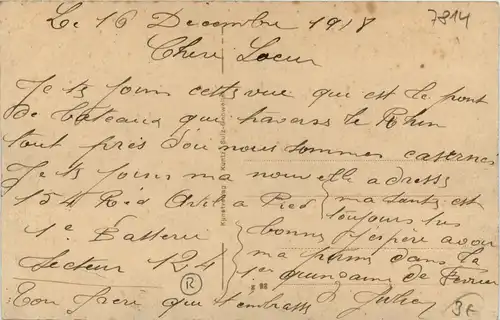 Le 16 Décembre 1918
7814
Chere Soeur
Je te joins cette vue qui est le pont
de bateaux qui travers le Rhin
tout près d'ou nous sommes casernes
Je te joins ma nouvelle adresse
154 Reg Art a Pied
1e Batterie
Secteur 124
ma santé est
toujours tres
bonne j'espère avoir
ma perme dans la
1er quinzaine de Février
Ton frere qui t'embrasse
R